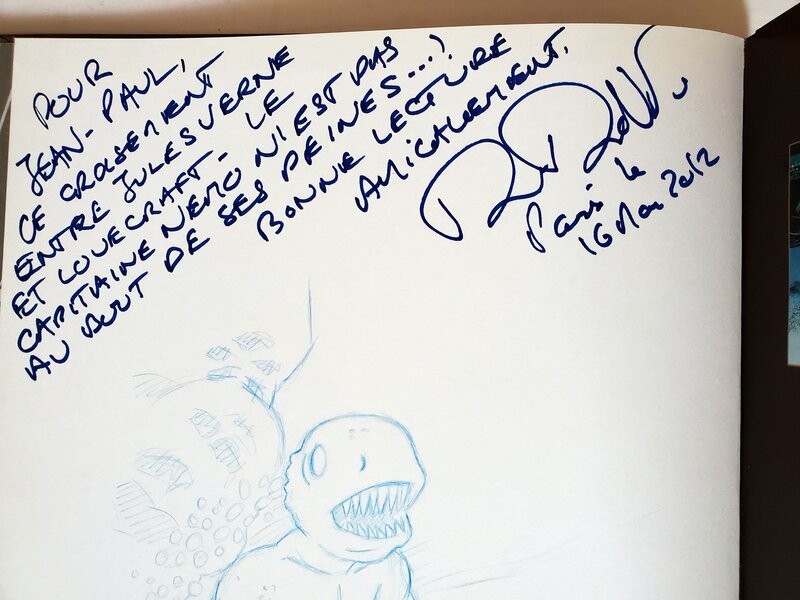 POUR
JEAN-PAUL,
CE CROISEMENT
ENTRE JULES VERNE
ET LOVECRAFT - LE
CAPITAINE NEMO N'EST PAS
AU BOUT DE SES PEINES...!
BONNE LECTURE
AMICALEMENT.
Paris le
16 Mai 2012